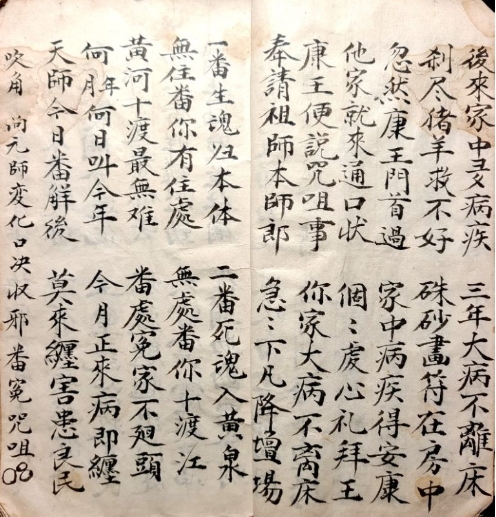 後來家中受病疾　三年大病不離床
刹尽猪羊救不好　硃砂畫符在房中
忽然康王門首過　家中病疾得安康
他家就來通口状　個〻虔心礼拜王
康王便説咒咀事　你家大病不离床
奉請祖師本師郎　急〻下凡降壇場
一番生魂归本体　二番死魂入黄泉
無住番你有住處　無處番你十渡江
黄河十渡最無难　番處冤家不廻頭
何年何月何日叫今年　今月正來病即纏
天師今日番解後　莫來纏害患良民
吹角　尚元師変化口决収邪番冤咒咀